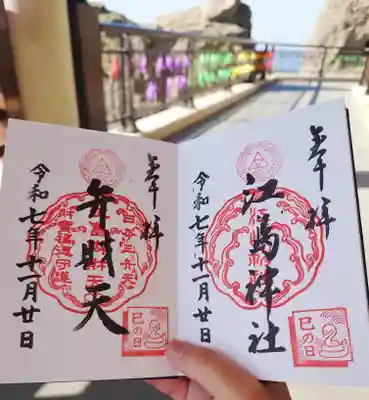 奉拝
江島神社
令和七年十一月廿日
巳の日
奉拝
弁財天
令和七年十一月廿日
巳の日